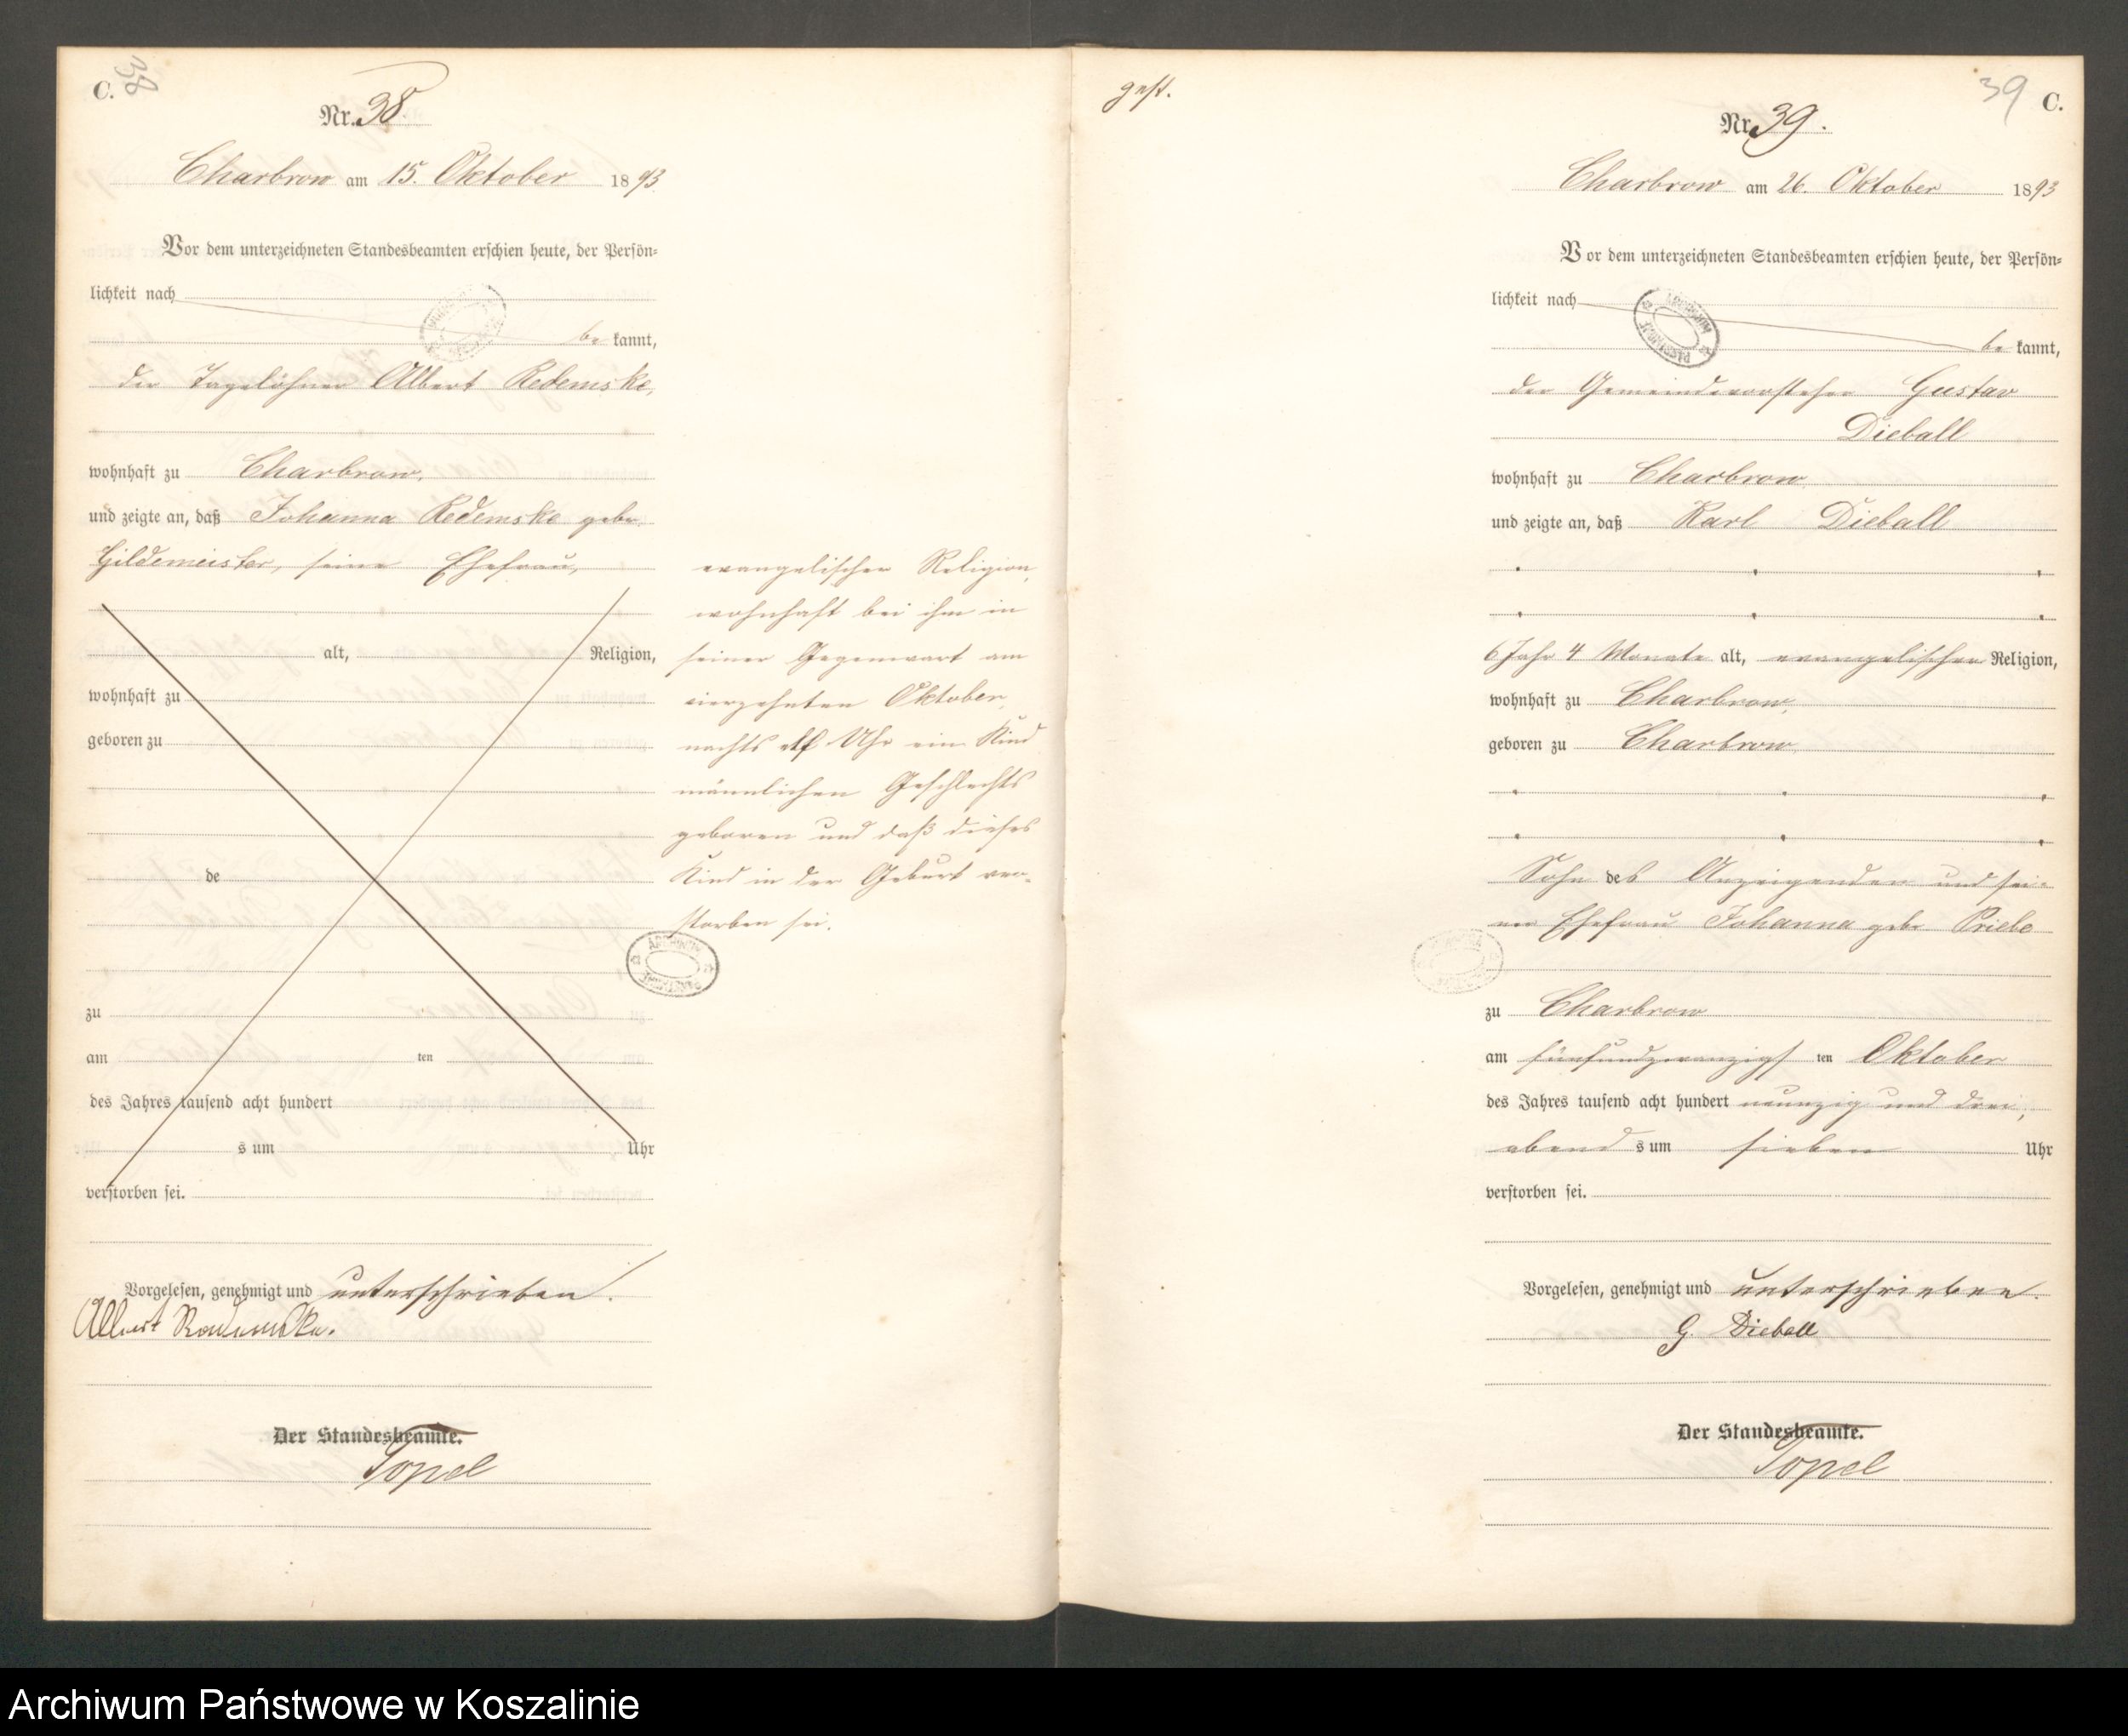 C.
38
Nr. 38.
Charbrow am 15. Oktober 1893
Vor dem unterzeichneten Standesbeamten erschien heute, der Persön-
lichkeit nach
be kannt,
der Tagelöhner Albert Redemske,
wohnhaft zu Charbrow,
und zeigte an, daß Johanna Redemske geb.
Gildemeister, seine Ehefrau,
alt, Religion,
wohnhaft zu
geboren zu
de
zu
am ten
des Jahres tausend acht hundert
s um Uhr
verstorben sei.
evangelischer Religion,
wohnhaft bei ihm in
seiner Gegenwart am
vierzehnten Oktober,
nachts elf Uhr ein Kind
männlichen Geschlechts
geboren und daß dieses
Kind in der Geburt ver-
storben sei.
Vorgelesen, genehmigt und unterschrieben.
Albert Redemske.
Der Standesbeamte.
Topel
gest.
39
C.
Nr. 39.
Charbrow am 26. Oktober 1893
Vor dem unterzeichneten Standesbeamten erschien heute, der Persön-
lichkeit nach
be kannt,
der Gemeindevorsteher Gustav
Dieball
wohnhaft zu Charbrow
und zeigte an, daß Karl Dieball
6 Jahr 4 Monate alt, evangelischer Religion,
wohnhaft zu Charbrow,
geboren zu Charbrow
Sohn des Anzeigenden und sei-
ner Ehefrau Johanna geb. Priebe
zu Charbrow
am fünfundzwanzigs ten Oktober
des Jahres tausend acht hundert neunzig und drei,
abend s um sieben Uhr
verstorben sei.
Vorgelesen, genehmigt und unterschrieben.
G. Dieball
Der Standesbeamte.
Topel
Archiwum Państwowe w Koszalinie